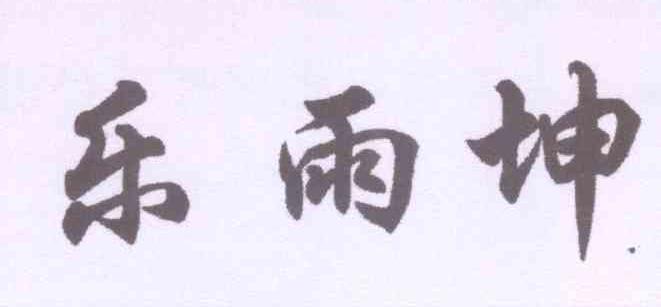 乐雨坤